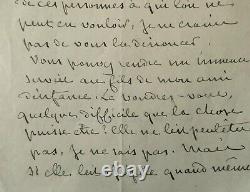 de ces personnes à qui l'on ne
peut en vouloir, je ne crains
pas de vous la dénoncer.
Vous pouvez rendre un immense
service au fils de mon ami
d'enfance. Le voudrez-vous,
quelque difficile que la chose
puisse être? Elle ne l'est peut-être
pas, je ne sais pas. Mais
si elle l'est quand même